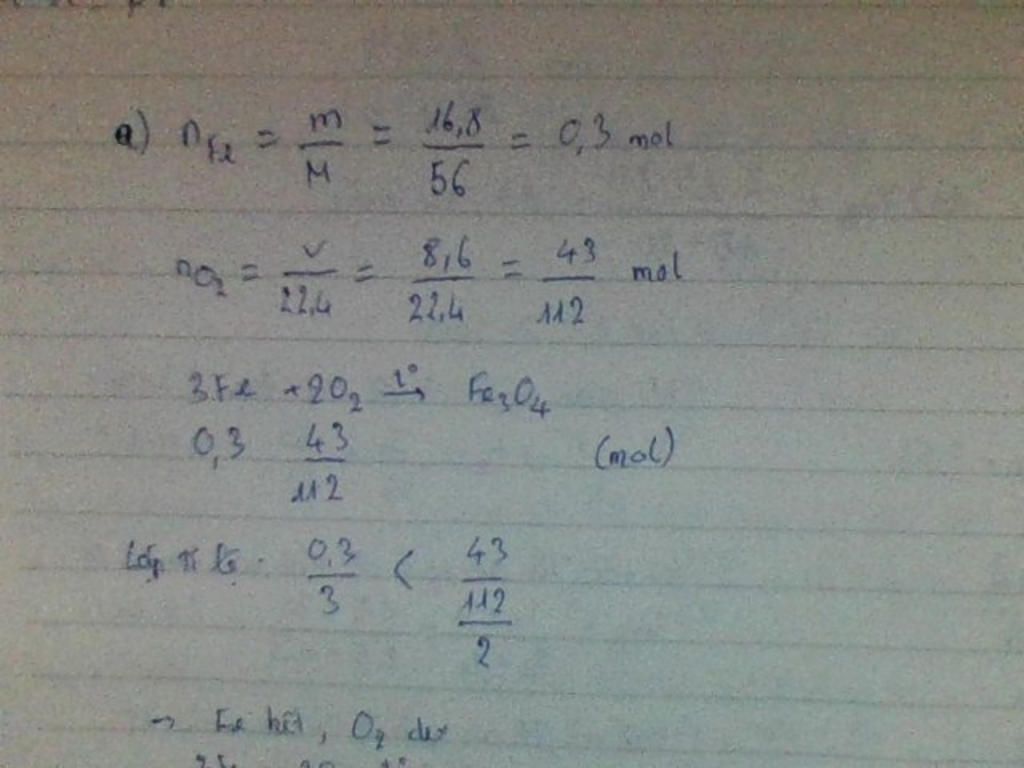 a) n_Fe = m/M = 16,8/56 = 0,3 mol
nO₂ = V/22,4 = 8,6/22,4 = 43/112 mol
3Fe + 2O₂ →(t°) Fe₃O₄
0,3 43/112 (mol)
Lập tỉ lệ: 0,3/3 < (43/112)/2
→ Fe hết, O₂ dư